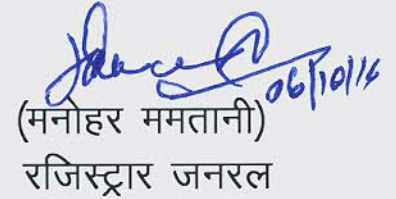 06/10/16
(मनोहर ममतानी)
रजिस्ट्रार जनरल